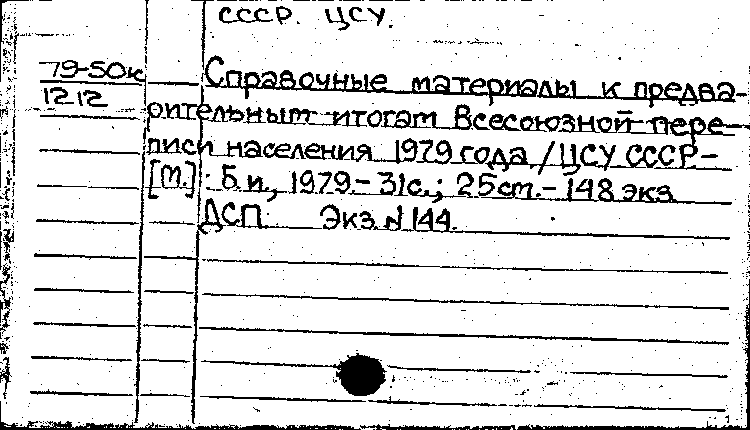 СССР. ЦСУ.
79-50к
1212
Справочные материалы к предва-
рительным итогам Всесоюзной пере-
писи населения 1979 года / ЦСУ СССР -
[М.] : Б. и., 1979. - 31с.; 25 cm. - 148 экз
ДСП. Экз N 144.